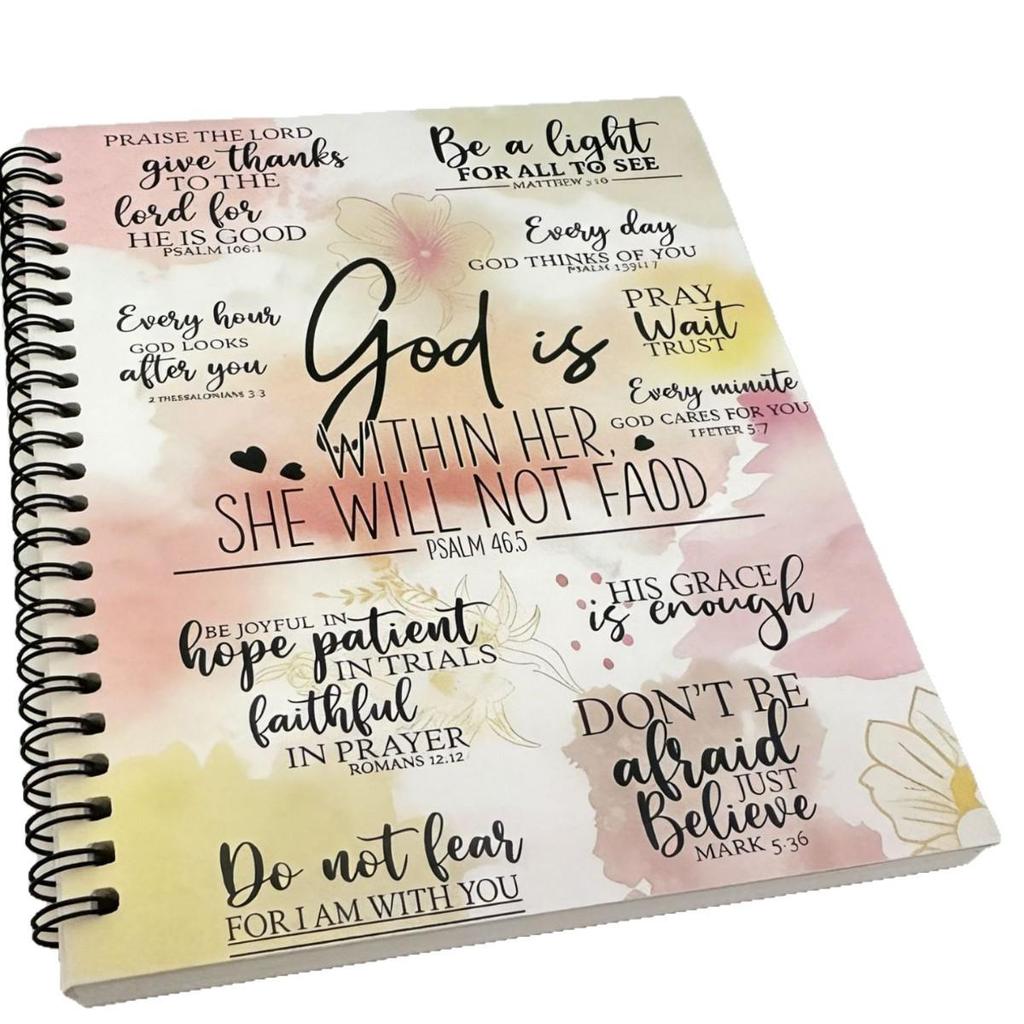 PRAISE THE LORD
give thanks
TO THE
lord for
HE IS GOOD
PSALM 106:1
Be a light
FOR ALL TO SEE
MATTHEW
Every day
GOD THINKS OF YOU
Every hour
GOD LOOKS
after you
2 THESSALONIANS 3 3
PRAY
Wait
TRUST
Every minute
GOD CARES FOR YOU
1 PETER 5:7
God is
WITHIN HER,
SHE WILL NOT FAOD
PSALM 46.5
BE JOYFUL IN
hope patient
IN TRIALS
faithful
IN PRAYER
ROMANS 12.12
HIS GRACE
is enough
DON'T BE
afraid
JUST
Believe
MARK 5·36
Do not fear
FOR I AM WITH YOU